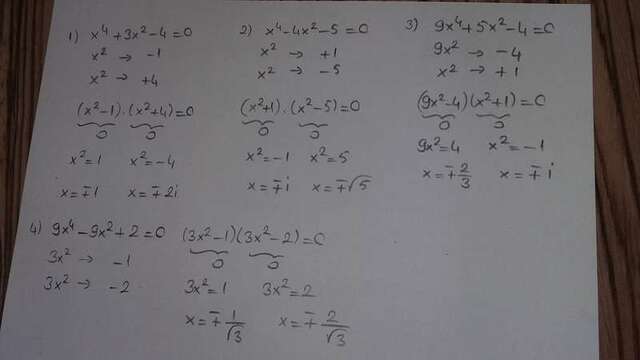 1) x⁴+3x²-4=0
x² → -1
x² → +4
(x²-1).(x²+4)=0
0 0
x²=1 x²=-4
x=∓1 x=∓2i
2) x⁴-4x²-5=0
x² → +1
x² → -5
(x²+1).(x²-5)=0
0 0
x²=-1 x²=5
x=∓i x=∓√5
3) 9x⁴+5x²-4=0
9x² → -4
x² → +1
(9x²-4)(x²+1)=0
0 0
9x²=4 x²=-1
x=∓2/3 x=∓i
4) 9x⁴-9x²+2=0 (3x²-1)(3x²-2)=0
3x² → -1 0 0
3x² → -2 3x²=1 3x²=2
x=∓1/√3 x=∓2/√3